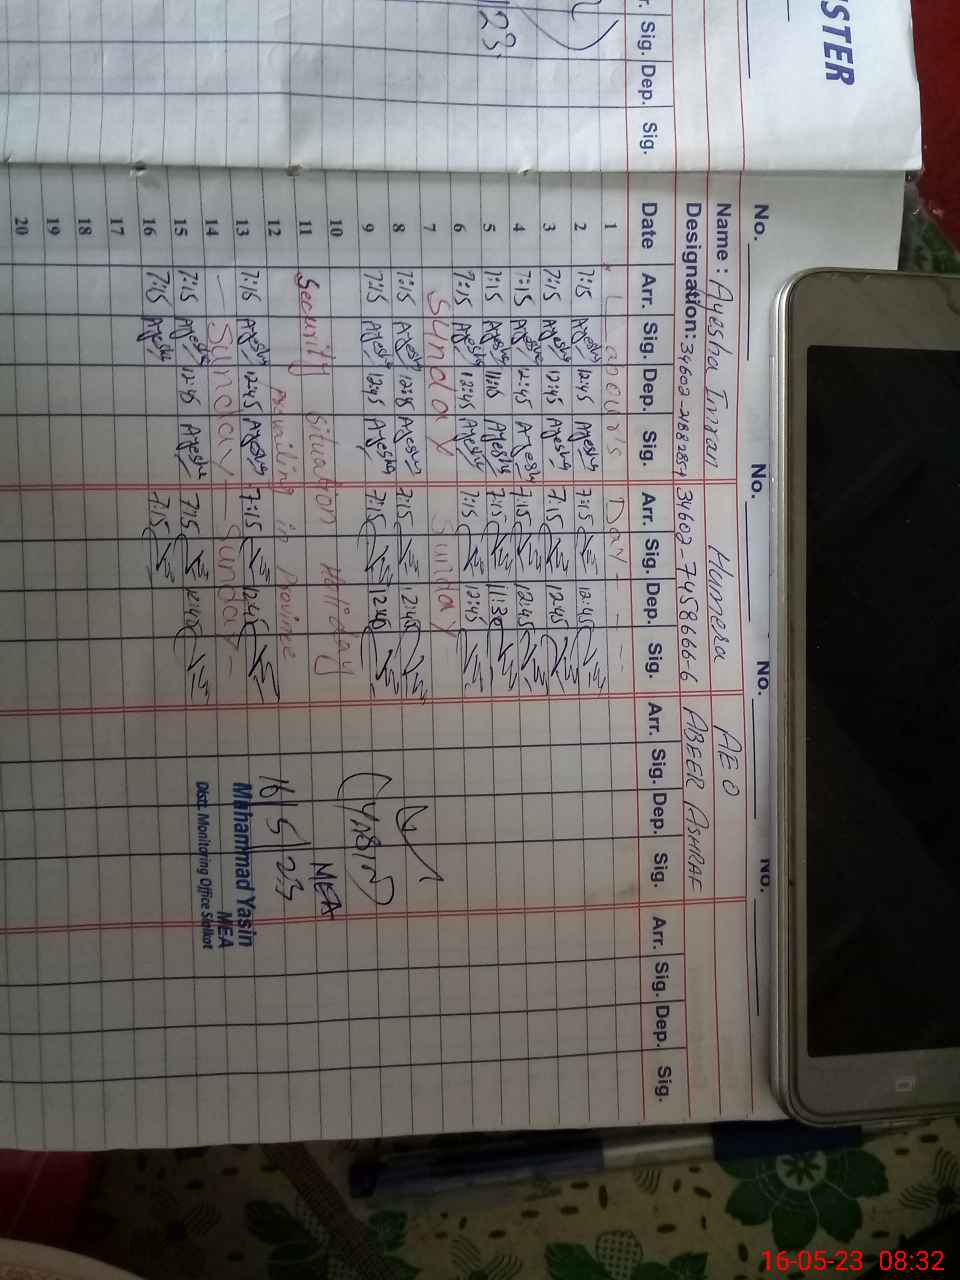 STER
r. Sig. Dep. Sig.
23
No. No. No. No.
Name : Ayesha Imran Humera AEO
Designation: 34602-7458666-6 ABEER ASHRAF
Date Arr. Sig. Dep. Sig. Arr. Sig. Dep. Sig. Arr. Sig. Dep. Sig. Arr. Sig. Dep. Sig.
1 Labour's Day
2 7:15 Ayesha 12:45 Ayesha 7:15 12:45
3 7:15 Ayesha 12:45 Ayesha 7:15 12:45
4 7:15 Ayesha 12:45 Ayesha 7:15 12:45
5 7:15 Ayesha Ayesha 7:15 11:30
6 7:15 Ayesha 12:45 Ayesha 7:15 12:45
7 Sunday Sunday
8 7:15 Ayesha 12:45 Ayesha 7:15 12:45
9 7:15 Ayesha 12:45 Ayesha 7:15 12:45
10
11 Security situation Holiday
12 Prevailing in Province
13 7:15 Ayesha 12:45 Ayesha 7:15 12:45
14 Sunday Sunday
15 7:15 Ayesha 12:45 Ayesha 7:15 12:45
16 7:15 Ayesha 7:15
17
18
19
20
(YASIN)
MEA
16/5/23
Mahammad Yasin
MEA
Distt. Monitoring Office Sialkot
16-05-23 08:32